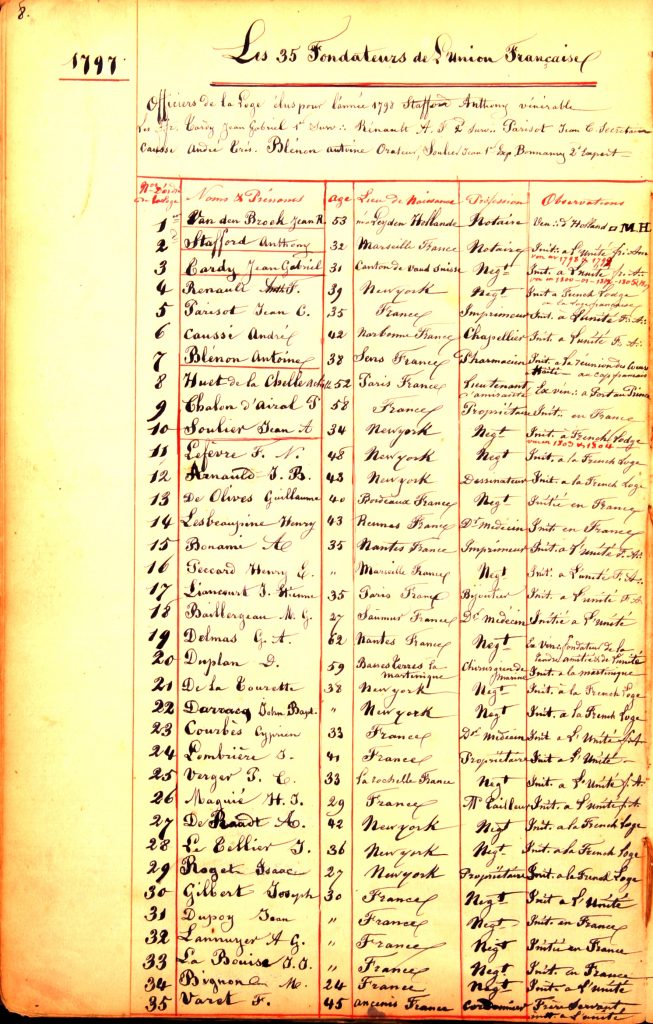 8.
1797
Les 35 Fondateurs de L'union Française
Officiers de la Loge élus pour l'année 1798 Stafford Anthony vénérable
Les ff. Cardy Jean Gabriel 1er Surv∴ Rénault A. F. 2d Surv∴ Parisot Jean C. Secrétaire
Causse André Trés. Blénon Antoine Orateur, Soulier Jean 1er Exp. Bonnamy 2e Expert
Nos d'ordre Noms & Prénoms age Lieu de Naissance Profession Observations
1er Van den Broek Jean R. 53 Leyden Hollande Notaire Ven∴ d'Holland M.H.
2d Stafford Anthony 32 Marseille France Notaire Init. à L'Unité
ven en 1798 & 1799
3 Cardy Jean Gabriel 31 Canton de Vaud Suisse Negt Init. a L'unité
4 Renault F. 39 New york Negt Init a French Lodge
ou la loge française
5 Parisot Jean C. 35 France Imprimeur Init. a L'unité F. A.
6 Caussé André 42 Narbonne France Chapellier Init. a L'unité F. A.
7 Blénon Antoine 38 Sens France Pharmacien Init a la réunion des Coeurs
au Cap français
8 Huet de la Chelle 52 Paris France Lieutenant d'amirauté Ex ven∴ a Port au Prince
9 Chalon d'Airal P 58 France Propriétaire Init. en France
10 Soulier Jean A 34 New york Negt Init. a French Lodge
ven en 1803 & 1804
11 Lefèvre F. N. 48 New york Negt Init. a la French Loge
12 Arnauld J. B. 43 New york Dessinateur Init. a la French Loge
13 De Olives Guillaume 40 Bordeaux France Negt Initié en France
14 Lesbeaupine Henry 43 France Dr Médecin Init en France
15 Bonami A 35 Nantes France Imprimeur Init. a L'unité F. A.
16 Peccard Henry E. " Marseille France Negt Init. a L'unité F. A.
17 Liancourt J. Etienne 35 Paris France Bijoutier Init. a L'unité F. A.
18 Baillergeau M. G. 27 Saumur France Dr Médecin Initié a L'unité
19 Delmas G. A. 62 Nantes France Negt Ex ven∴ fondateur de la
L'unité
20 Duplan D. 59 Basses terres la martinique Chirurgien de Marine Init. a la martinique
21 De la Tourette 38 New york Negt Init. a la French Loge
22 Darracq John Bapt. " New york Negt Init. a la French Loge
23 Courbès Cyprien 33 France Dr Médecin Init a L'Unité f. A
24 Lombrière J. 41 France Propriétaire Init a L'Unité
25 Verger P. C. 33 La rochelle France Negt Init. a L'Unité f. A.
26 Maguié H. J. 29 France Md Tailleur Init. a L'unité f. A
27 De Raadt A. 42 New york Negt Init. a la French Loge
28 Le Tellier J. 36 New york Negt Init. a la French Loge
29 Roget Isaac 27 New york Propriétaire Init. a la French Loge
30 Gilbert Joseph 30 France Negt Init a L'Unité
31 Dupoy Jean " France Negt Init. en France
32 Lannuyer A G. " France Negt Initié en France
33 La Bouise J. J. " France Negt Init. en France
34 Bignon M. 24 France Negt Init. a L'unité
35 Varet F. 45 ancenis France Cordonnier Frère Servant
init. a L'unité